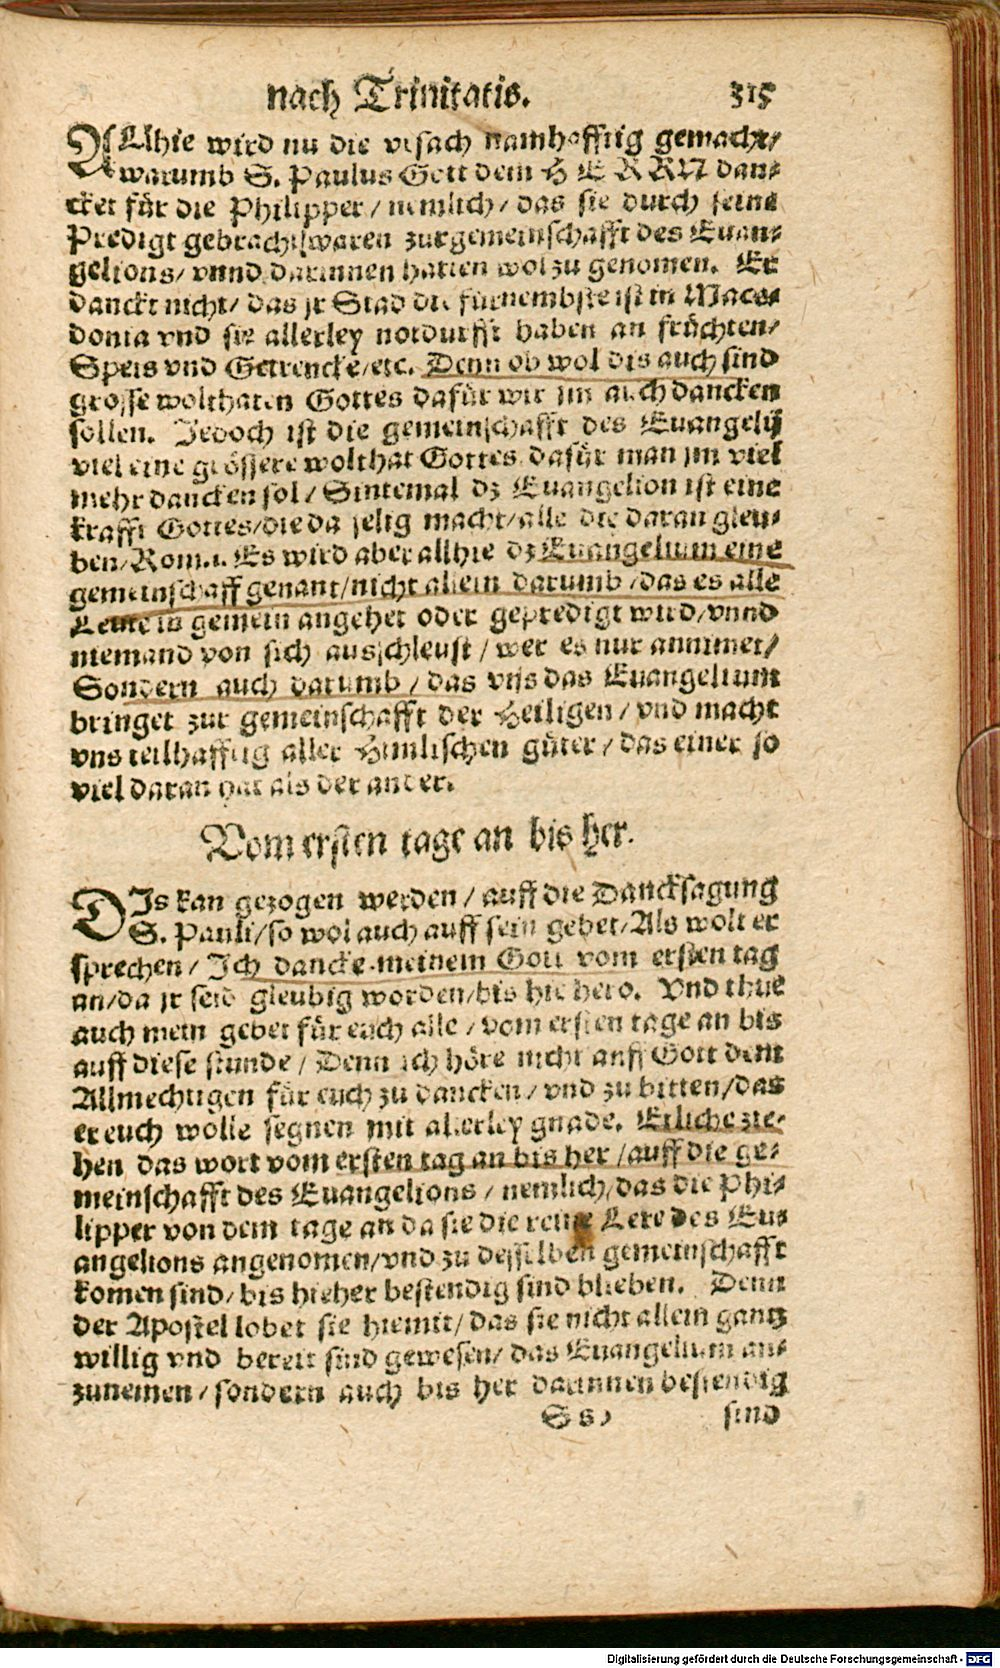 nach Trinitatis. 315
ALhie wird nu die vrsach namhafftig gemacht/
warumb S. Paulus Gott dem HERRN dan-
cket für die Philipper / nemlich / das sie durch seine
Predigt gebracht waren zur gemeinschafft des Euan-
gelions / vnnd darinnen hatten wol zu genomen. Er
danckt nicht / das jr Stad die fürnembste ist in Mace-
donia vnd sie allerley notdurfft haben an früchten/
Speis vnd Getrencke / etc. Denn ob wol dis auch sind
grosse wolthaten Gottes dafür wir jm auch dancken
sollen. Jedoch ist die gemeinschafft des Euangelij
viel eine grössere wolthat Gottes dafür man jm viel
mehr dancken sol / Sintemal dz Euangelion ist eine
krafft Gottes / die da selig macht / alle die daran gleu-
ben / Rom.1. Es wird aber allhie dz Euangelium eine
gemeinschaff genant / nicht allein darumb / das es alle
Leute in gemein angehet oder gepredigt wird / vnnd
niemand von sich ausschleust / wer es nur annimet /
Sondern auch darumb / das vns das Euangelium
bringet zur gemeinschafft der Heiligen / vnd macht
vns teilhafftig aller Himlischen güter / das einer so
viel daran hat als der ander.
Vom ersten tage an bis her.
DIs kan gezogen werden / auff die Dancksagung
S. Pauli / so wol auch auff sein gebet / Als wolt er
sprechen / Ich dancke meinem Gott vom ersten tag
an / da jr seid gleubig worden / bis hie hero. Vnd thue
auch mein gebet für euch alle / vom ersten tage an bis
auff diese stunde / Denn ich höre nicht auff Gott dem
Allmechtigen für euch zu dancken / vnd zu bitten / das
er euch wolle segnen mit allerley gnade. Etliche zie-
hen das wort vom ersten tag an bis her / auff die ge-
meinschafft des Euangelions / nemlich / das die Phi-
lipper von dem tage an da sie die reine Lere des Eu-
angelions angenomen / vnd zu desselben gemeinschafft
komen sind / bis hieher bestendig sind blieben. Denn
der Apostel lobet sie hiemit / das sie nicht allein gantz
willig vnd bereit sind gewesen / das Euangelium an-
zunemen / sondern auch bis her darinnen bestendig
Ss sind
Digitalisierung gefördert durch die Deutsche Forschungsgemeinschaft - DFG